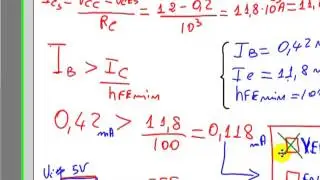 Ics = Vcc - Vces / Rc = 12 - 0,2 / 10³ = 11,8·10⁻³A = 11,
IB > Ic / hFEmin
IB = 0,42
Ic = 11,8 m
hFEmin = 100
0,42 mA > 11,8 / 100 = 0,118 mA
Ui = 5V